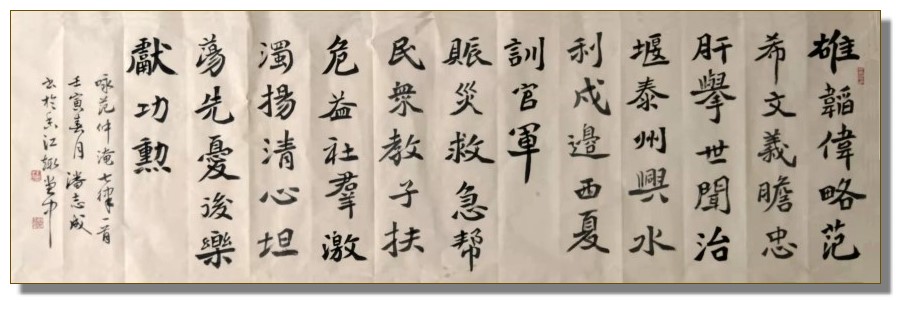 雄韜偉略范
希文義膽忠
肝擧世聞治
堰泰州興水
利戍邊西夏
訓官軍
賑災救急帮
民衆教子扶
危益社羣激
濁揚清心坦
蕩先憂後樂
獻功勳
咏范仲淹七律一首
壬寅春月潘志成
书於香江堂中